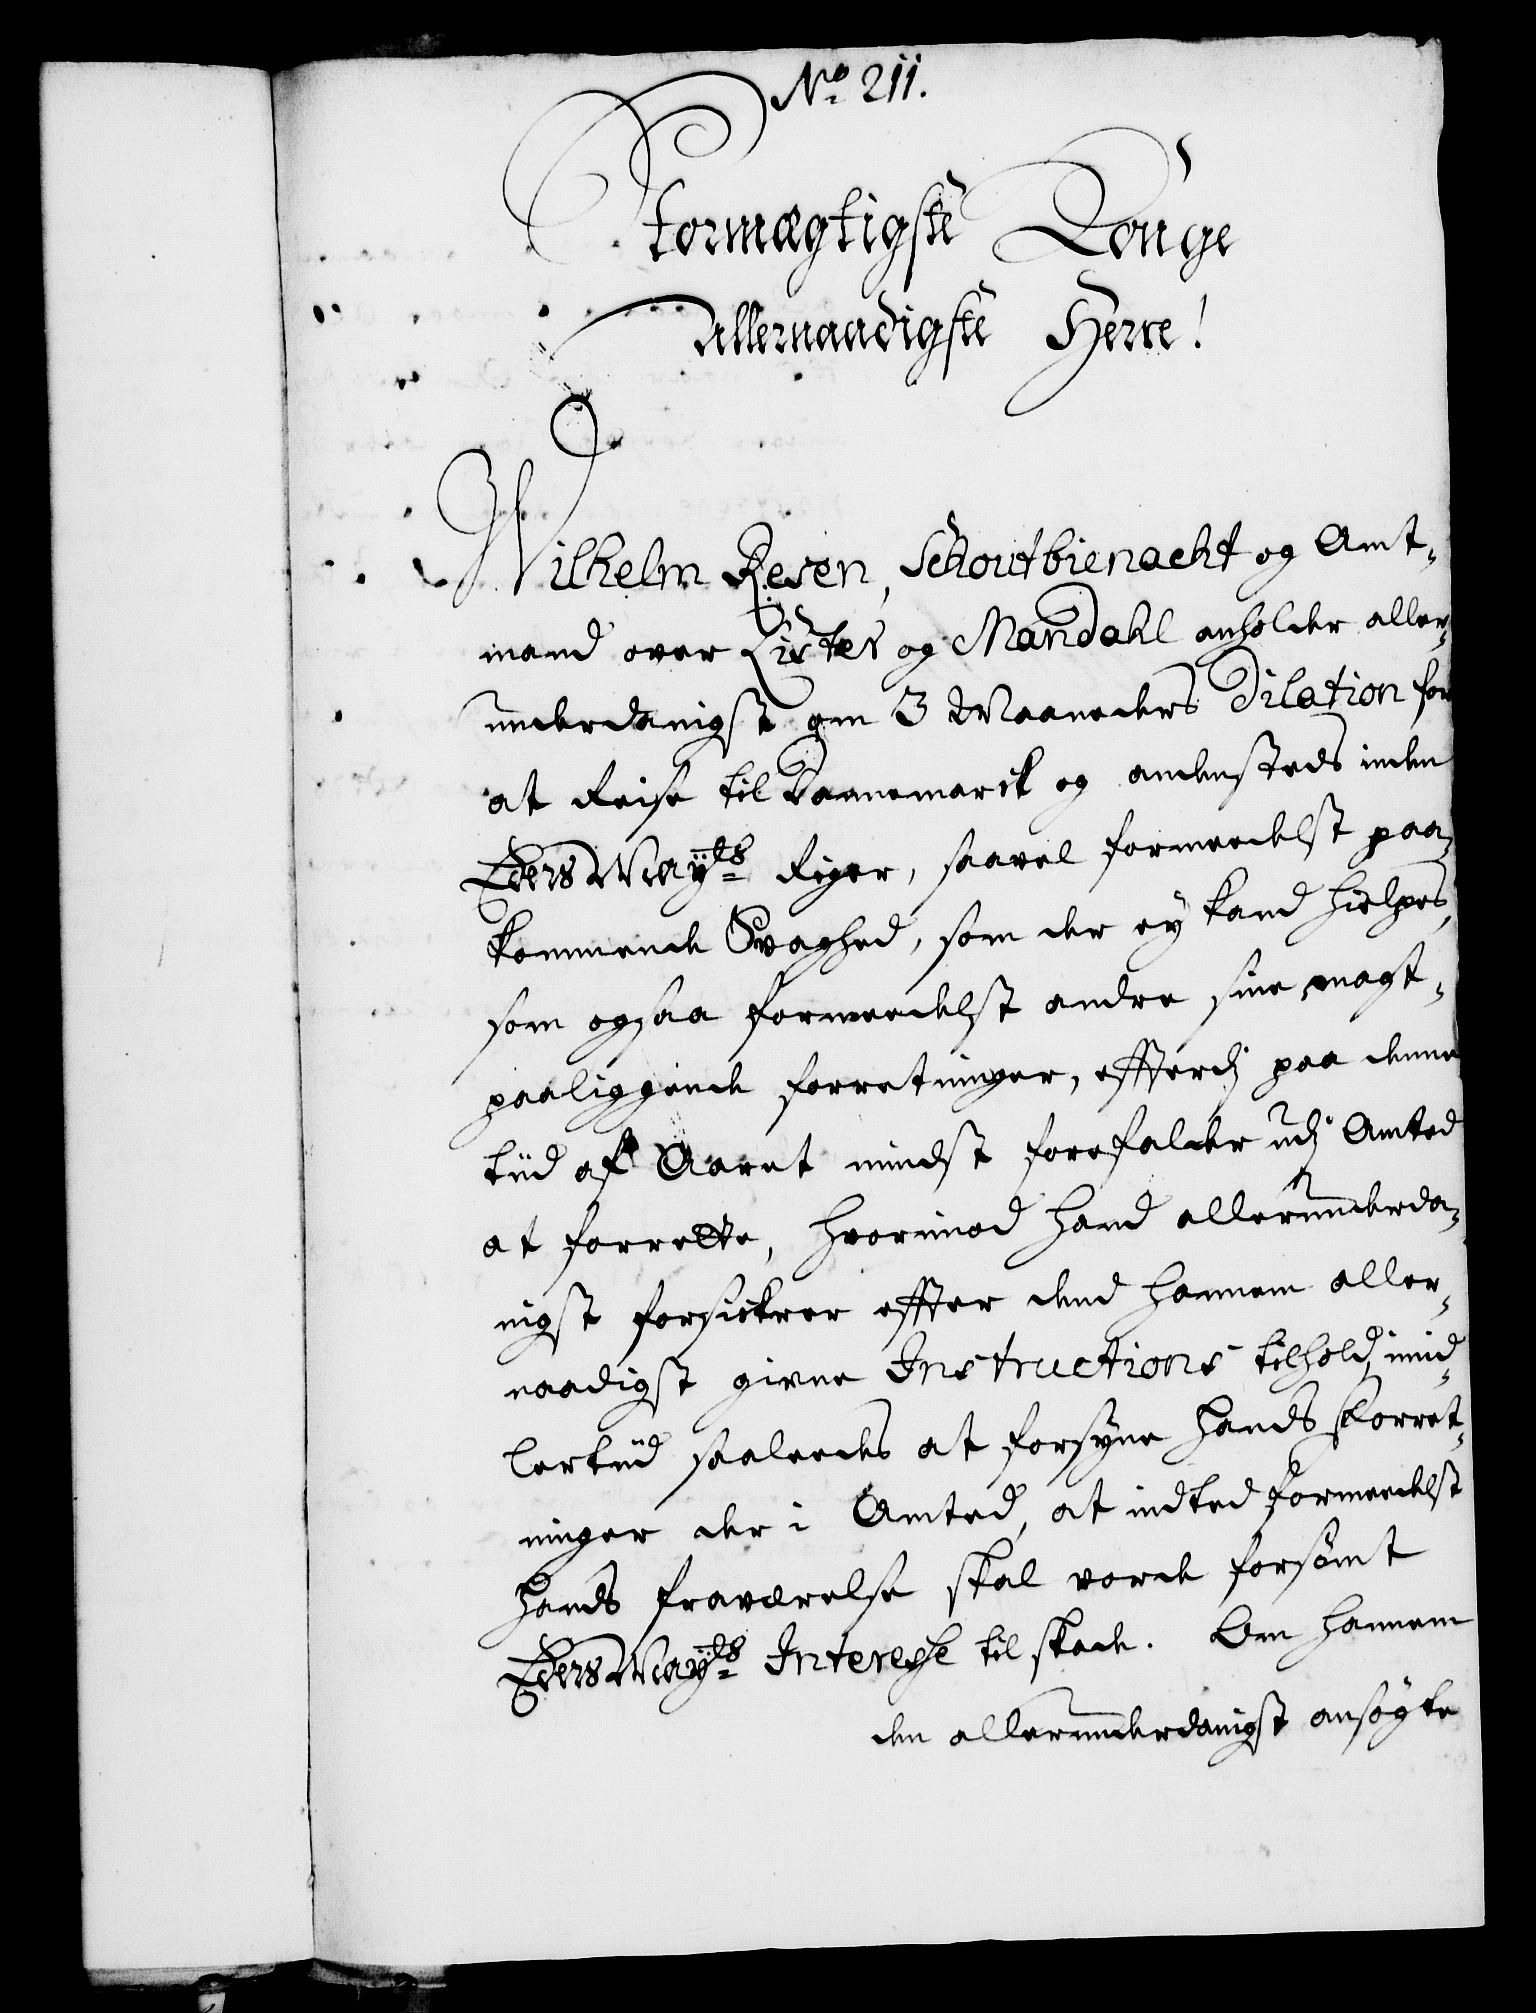 No 211.
Stormægtigste Konge
Allernaadigste Herre!
Wilhelm Resen, Schoutbienacht og Amt-
mand over Lister og Mandahl anholder aller-
underdanigst om 3 Maaneders Dilation for
at Reise til Dannemarck og andensteds inden
Eders Mayts Riger, saavel formeedelst paa-
kommende Svaghed, som der ey kand hielpes,
som ogsaa formeedelst andre sine magt-
paaliggende forretninger, efterdj paa denne
tiid af Aaret mindst forefalder udj Amted
at forrette, hvorimod hand allerunderda-
nigst forsickrer effter dend hannem aller-
naadigst givne Instructions tilhold, mid-
lertiid saaleedes at forsyne hands forret-
ninger der i Amted, at indted formeedelst
hands fraværelse skal vorde forsømt
Eders Mayts Interesse til skade. Om hannem
den allerunderdanigst ansøgte